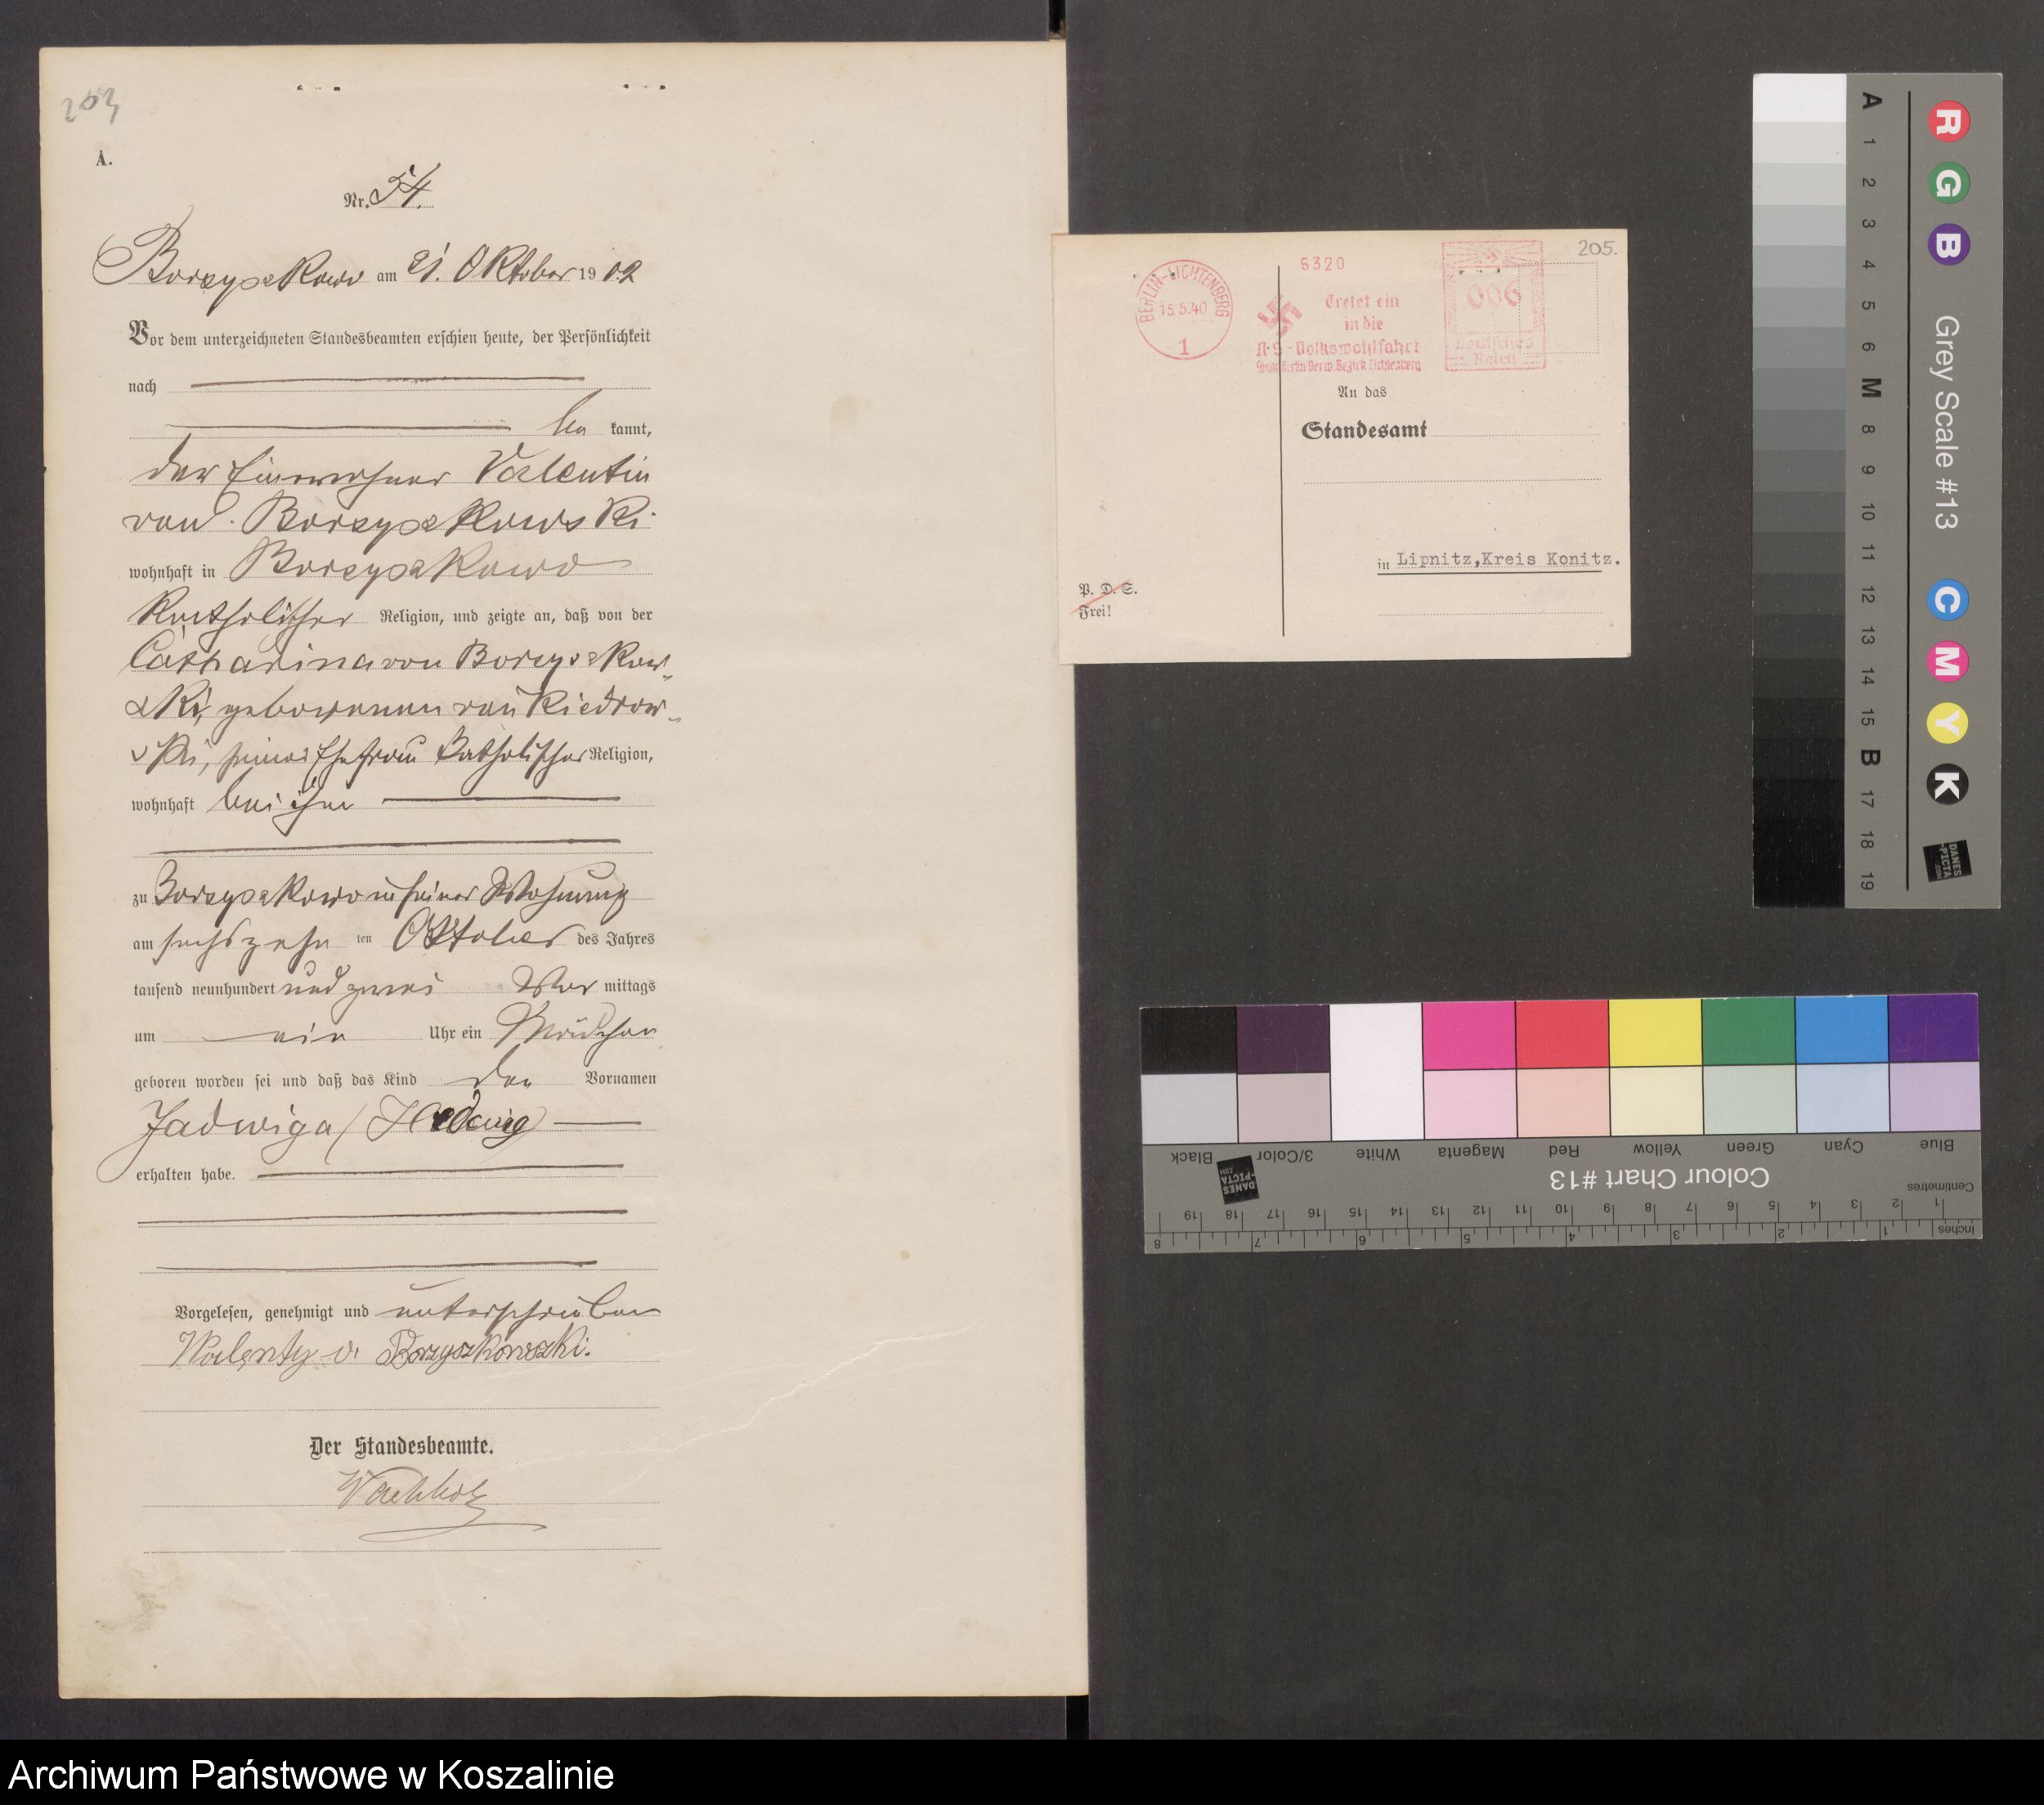 203
A.
Nr. 54.
Borzyszkowo am 21. Oktober 1902
Vor dem unterzeichneten Standesbeamten erschien heute, der Persönlichkeit
nach
be kannt,
der Einwohner Valentin
von Borzyszkowski
wohnhaft in Borzyszkowo
katholischer Religion, und zeigte an, daß von der
Catharina von Borzyszkow-
ski, geborenen von Kiedrow-
ski, seiner Ehefrau katholischer Religion,
wohnhaft bei ihm
zu Borzyszkowo in seiner Wohnung
am sechszehn ten Oktober des Jahres
tausend neunhundert und zwei Vor mittags
um ein Uhr ein Mädchen
geboren worden sei und daß das Kind den Vornamen
Jadwiga (Hedwig)
erhalten habe.
Vorgelesen, genehmigt und unterschrieben
Walenty v. Borzyszkowszki.
Der Standesbeamte.
205.
BERLIN-LICHTENBERG
15.5.40
1
6320
Tretet ein
in die
N·S-Volkswohlfahrt
Stadt Berlin Verw. Bezirk Lichtenberg
006
Deutsches
Reich
An das
Standesamt
in Lipnitz,Kreis Konitz.
P. D. S.
Frei!
A 1 2 3 4 5 6 M 8 9 10 11 12 13 14 15 B 17 18 19
R G B Grey Scale #13 C M Y K
DANES
-PICTA
.COM
Blue Cyan Green Yellow Red Magenta White 3/Color Black
Colour Chart #13
DANES
-PICTA
.COM
Centimetres
1 2 3 4 5 6 7 8 9 10 11 12 13 14 15 16 17 18 19
Inches
1 2 3 4 5 6 7 8
Archiwum Państwowe w Koszalinie